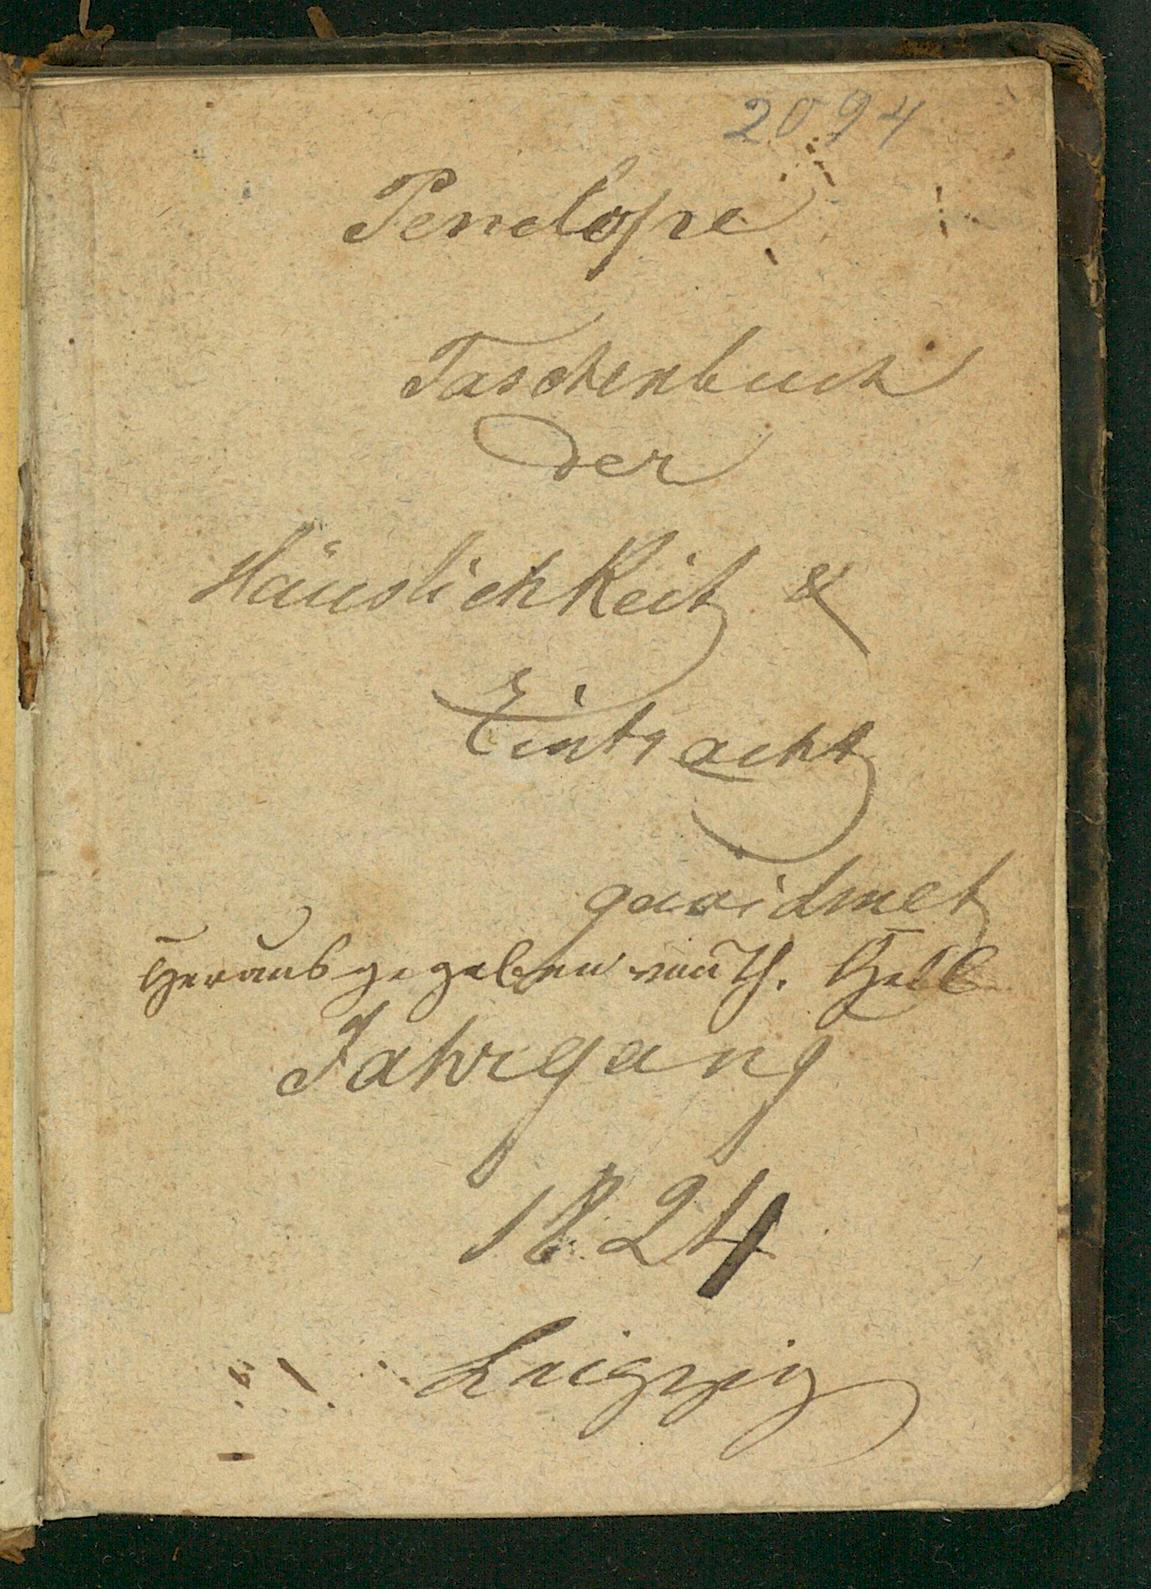 2094
Penelope
Taschenbuch
der
Häuslichkeit &
Eintracht
gewidmet
Herausgegeben von Th. Hell
Jahrgang
1824
Leipzig